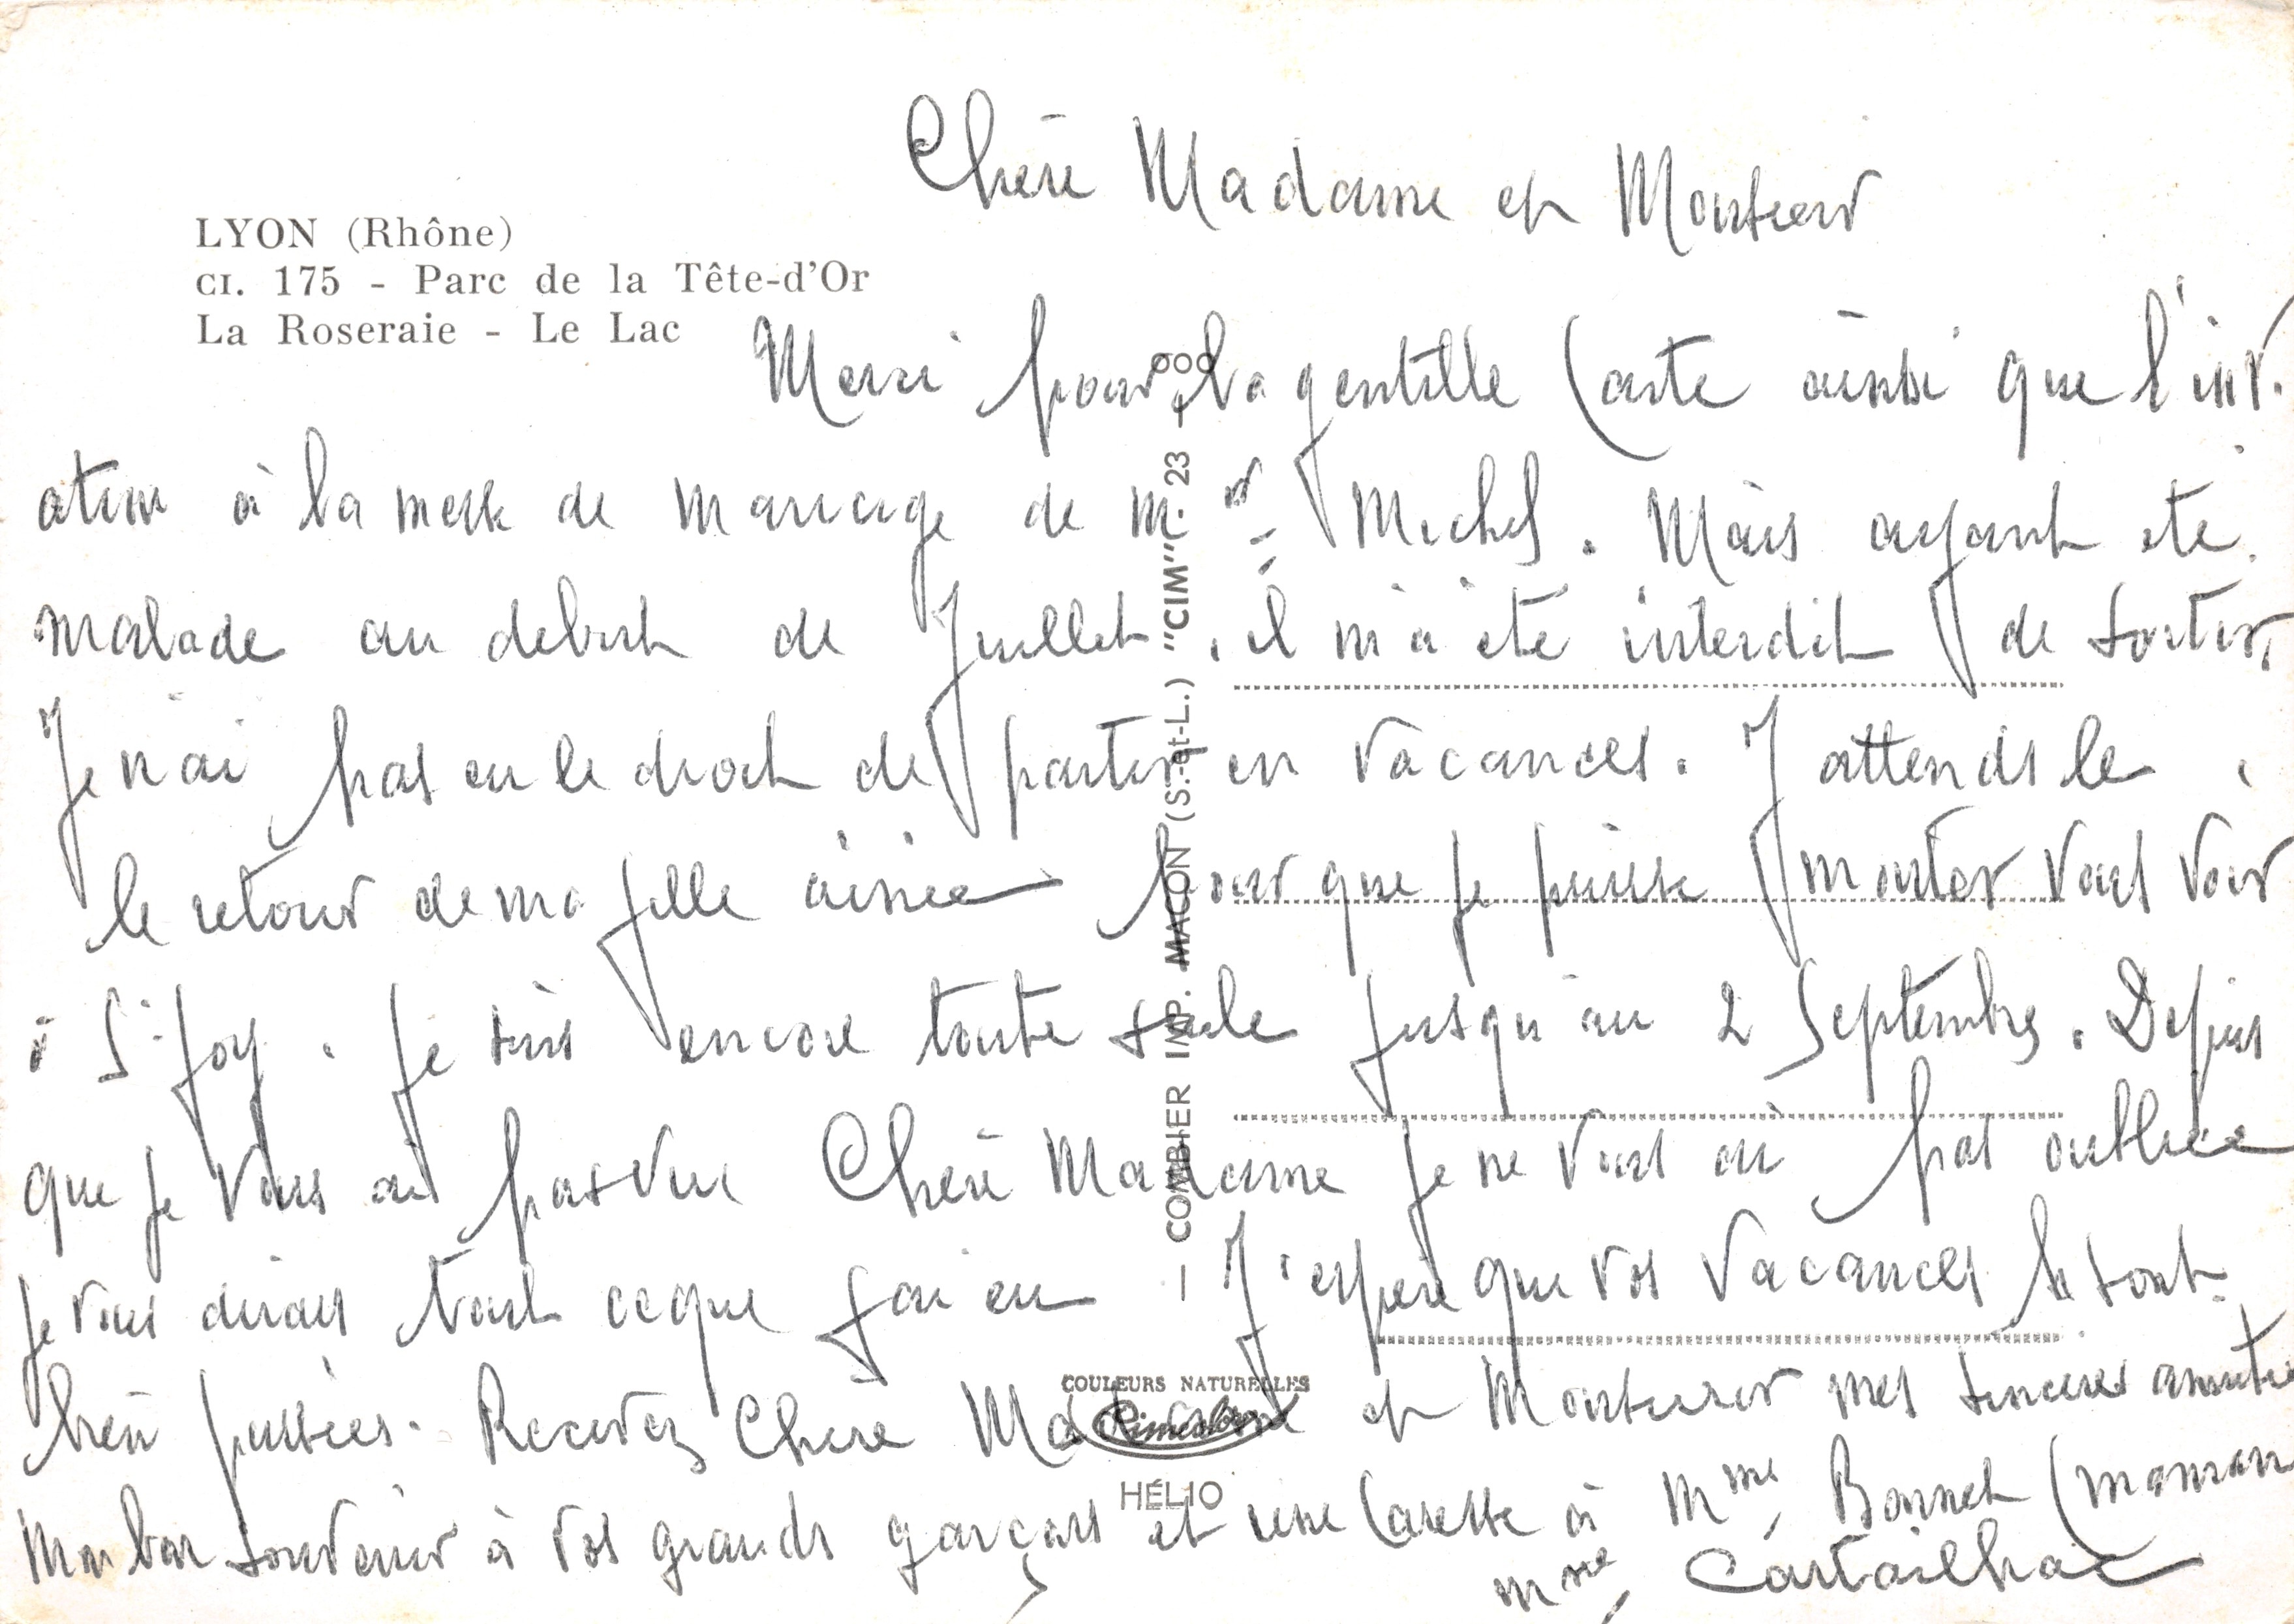 Chère Madame et Monsieur
LYON (Rhône)
CI. 175 - Parc de la Tête-d'Or
La Roseraie - Le Lac
Merci pour la gentille Carte ainsi que l'invit.
ation à la messe de mariage de M.r Michel. Mais ayant été
malade au debut de Juillet, il m'a été interdit de sortir,
Je n'ai pas eu le droit de partir en vacances. J attends le
le retour de ma fille ainée pour que je puisse monter vous voir
à St foy. Je suis encore toute seule jusqu'au 2 Septembre. Depuis
que je vous ai pas vue Chère Madame je ne vous ai pas oubliée
je vous dirais tout ce que j'ai eu J'espère que vos vacances se sont
bien passées. Recevez Chère Madame et Monsieur mes sincères amitié
Mon bon souvenir à vos grands garçons et une Caresse à Mme Bonnet (maman
Mme Cartailhac
COMBIER IMP. MACON (S.-et-L.) "CIM" 23 -
COULEURS NATURELLES
HÉLIO